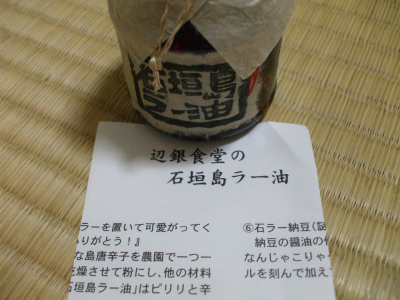 石垣島
ラー油
辺銀食堂の
石垣島ラー油
ラーを置いて可愛がってく
ありがとう！』
な島唐辛子を農園で一つ一
乾燥させて粉にし、他の材料
石垣島ラー油」はピリリと辛
⑥石ラー納豆(
納豆の醤油の
なんじゃこりゃ
ルを刻んで加え